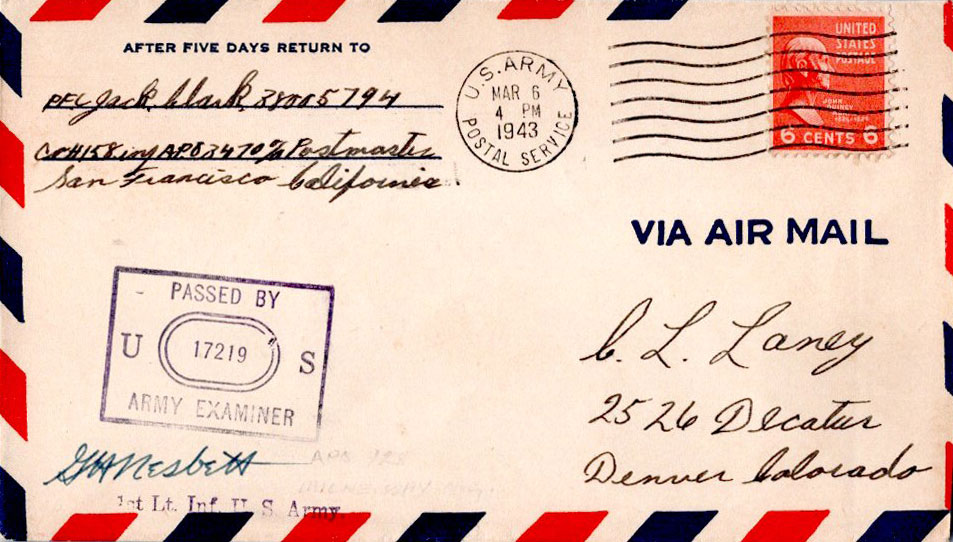 AFTER FIVE DAYS RETURN TO
PFC Jack Clark, 38005794
Co H 158 inf APO 3470 % Postmaster
San Francisco California.
U.S. ARMY
MAR 6
4 PM
1943
POSTAL SERVICE
UNITED
STATES
POSTAGE
JOHN
QUINCY
6 CENTS 6
VIA AIR MAIL
PASSED BY
U 17219 S
ARMY EXAMINER
C. L. Laney
2526 Decatur
Denver Colorado
GH Nesbett
1st Lt. Inf. U. S. Army.
APO 928